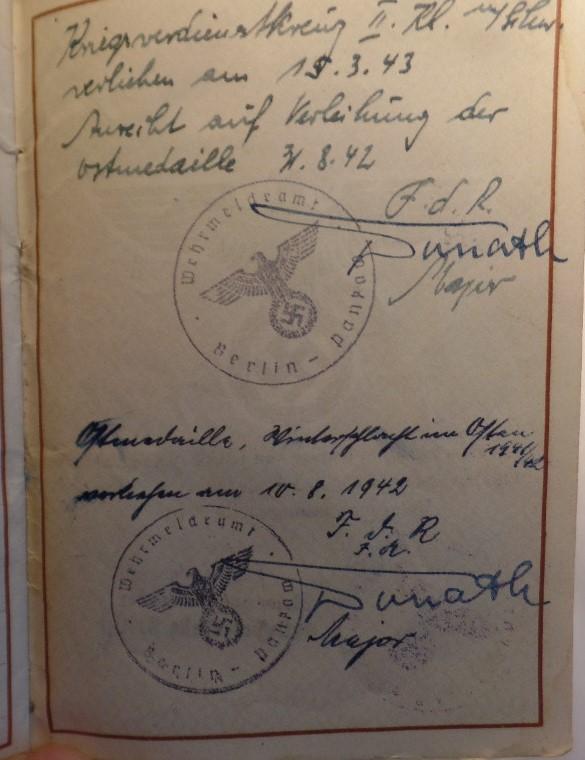 Kriegsverdienstkreuz II. Kl. m/Schw.
verliehen am 15.3.43
Anrecht auf Verleihung der
Ostmedaille 31.8.42
F.d.R.
Donath
Major
Wehrmeldeamt
Berlin - Pankow
Ostmedaille, Winterschlacht im Osten
1941/42
verliehen am 10.8.1942
F. d. R
F.d.
Donath
Major
Wehrmeldeamt
Berlin - Pankow